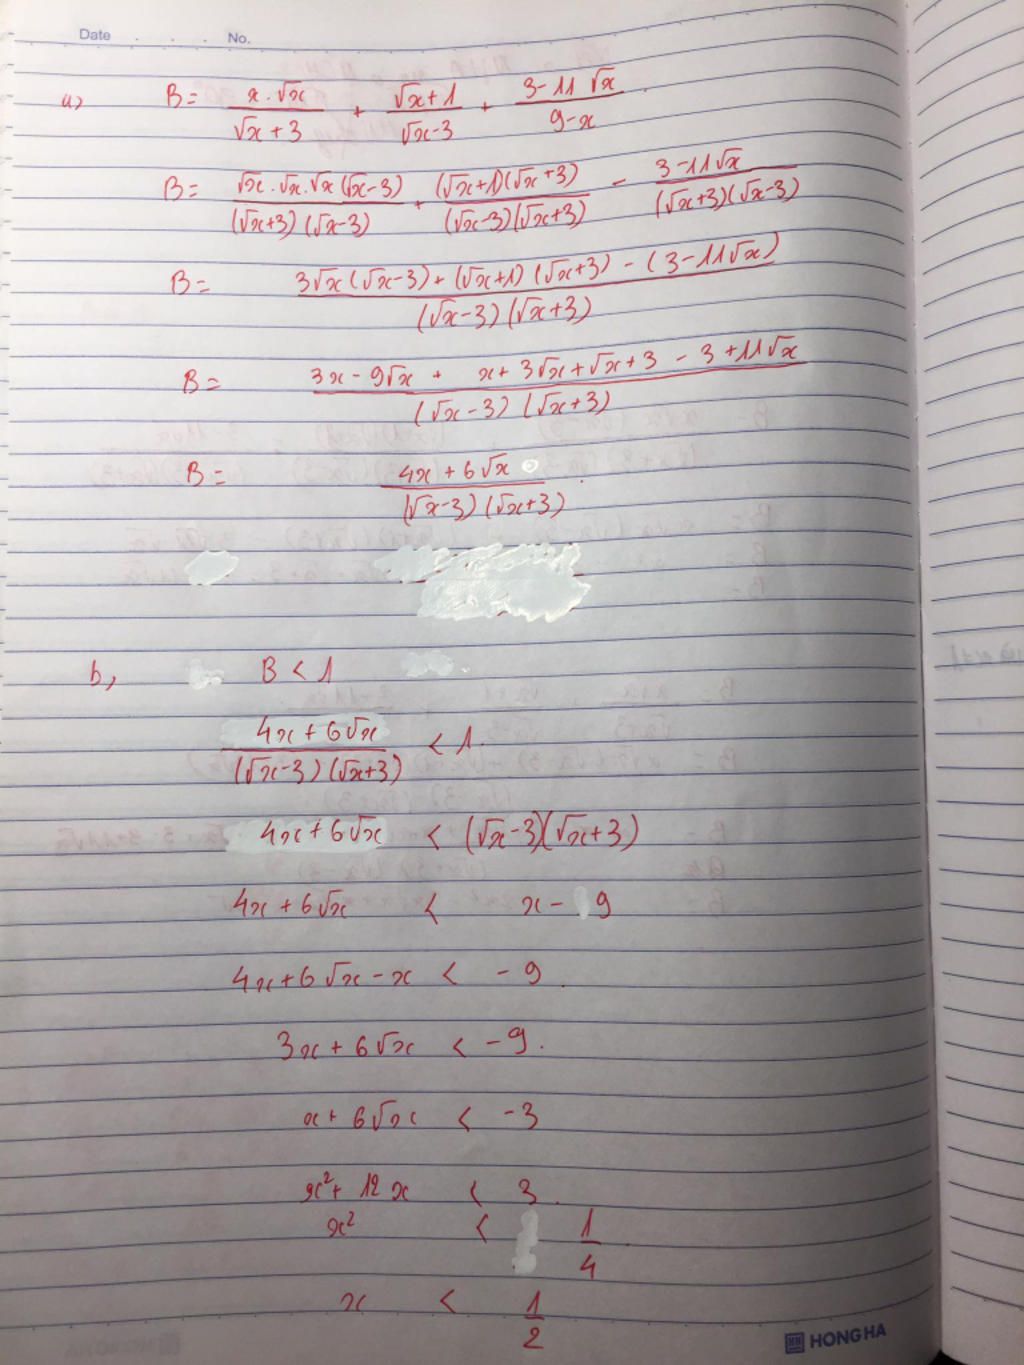 Date No.
a) B = \frac{x.\sqrt{x}}{\sqrt{x}+3} + \frac{\sqrt{x}+1}{\sqrt{x}-3} + \frac{3-11\sqrt{x}}{9-x}
B = \frac{\sqrt{x}.\sqrt{x}.\sqrt{x}(\sqrt{x}-3)}{(\sqrt{x}+3)(\sqrt{x}-3)} + \frac{(\sqrt{x}+1)(\sqrt{x}+3)}{(\sqrt{x}-3)(\sqrt{x}+3)} - \frac{3-11\sqrt{x}}{(\sqrt{x}+3)(\sqrt{x}-3)}
B = \frac{3\sqrt{x}(\sqrt{x}-3)+(\sqrt{x}+1)(\sqrt{x}+3)-(3-11\sqrt{x})}{(\sqrt{x}-3)(\sqrt{x}+3)}
B = \frac{3x-9\sqrt{x}+x+3\sqrt{x}+\sqrt{x}+3-3+11\sqrt{x}}{(\sqrt{x}-3)(\sqrt{x}+3)}
B = \frac{4x+6\sqrt{x}}{(\sqrt{x}-3)(\sqrt{x}+3)}.
b, B < 1
\frac{4x+6\sqrt{x}}{(\sqrt{x}-3)(\sqrt{x}+3)} < 1.
4x+6\sqrt{x} < (\sqrt{x}-3)(\sqrt{x}+3)
4x+6\sqrt{x} < x-9
4x+6\sqrt{x}-x < -9.
3x+6\sqrt{x} < -9.
x+6\sqrt{x} < -3
x^2+12x < 3.
x^2 < \frac{1}{4}
x < \frac{1}{2}
HONG HA